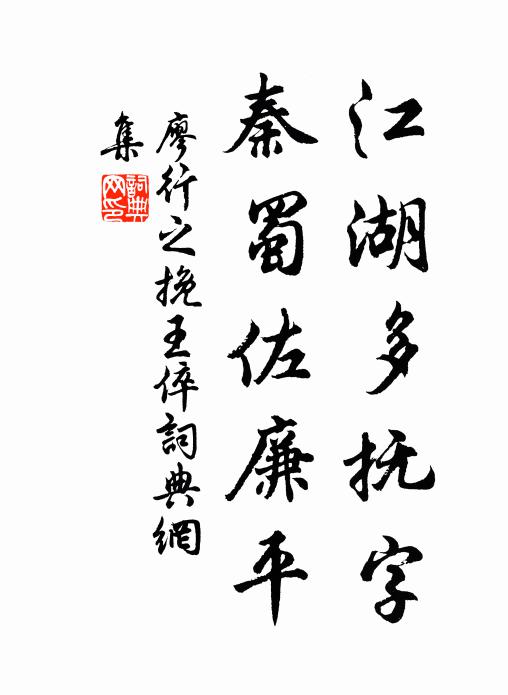 江湖多抚字
秦蜀佐廉平
廖行之挽王倅詞典網
集
詞典
网印